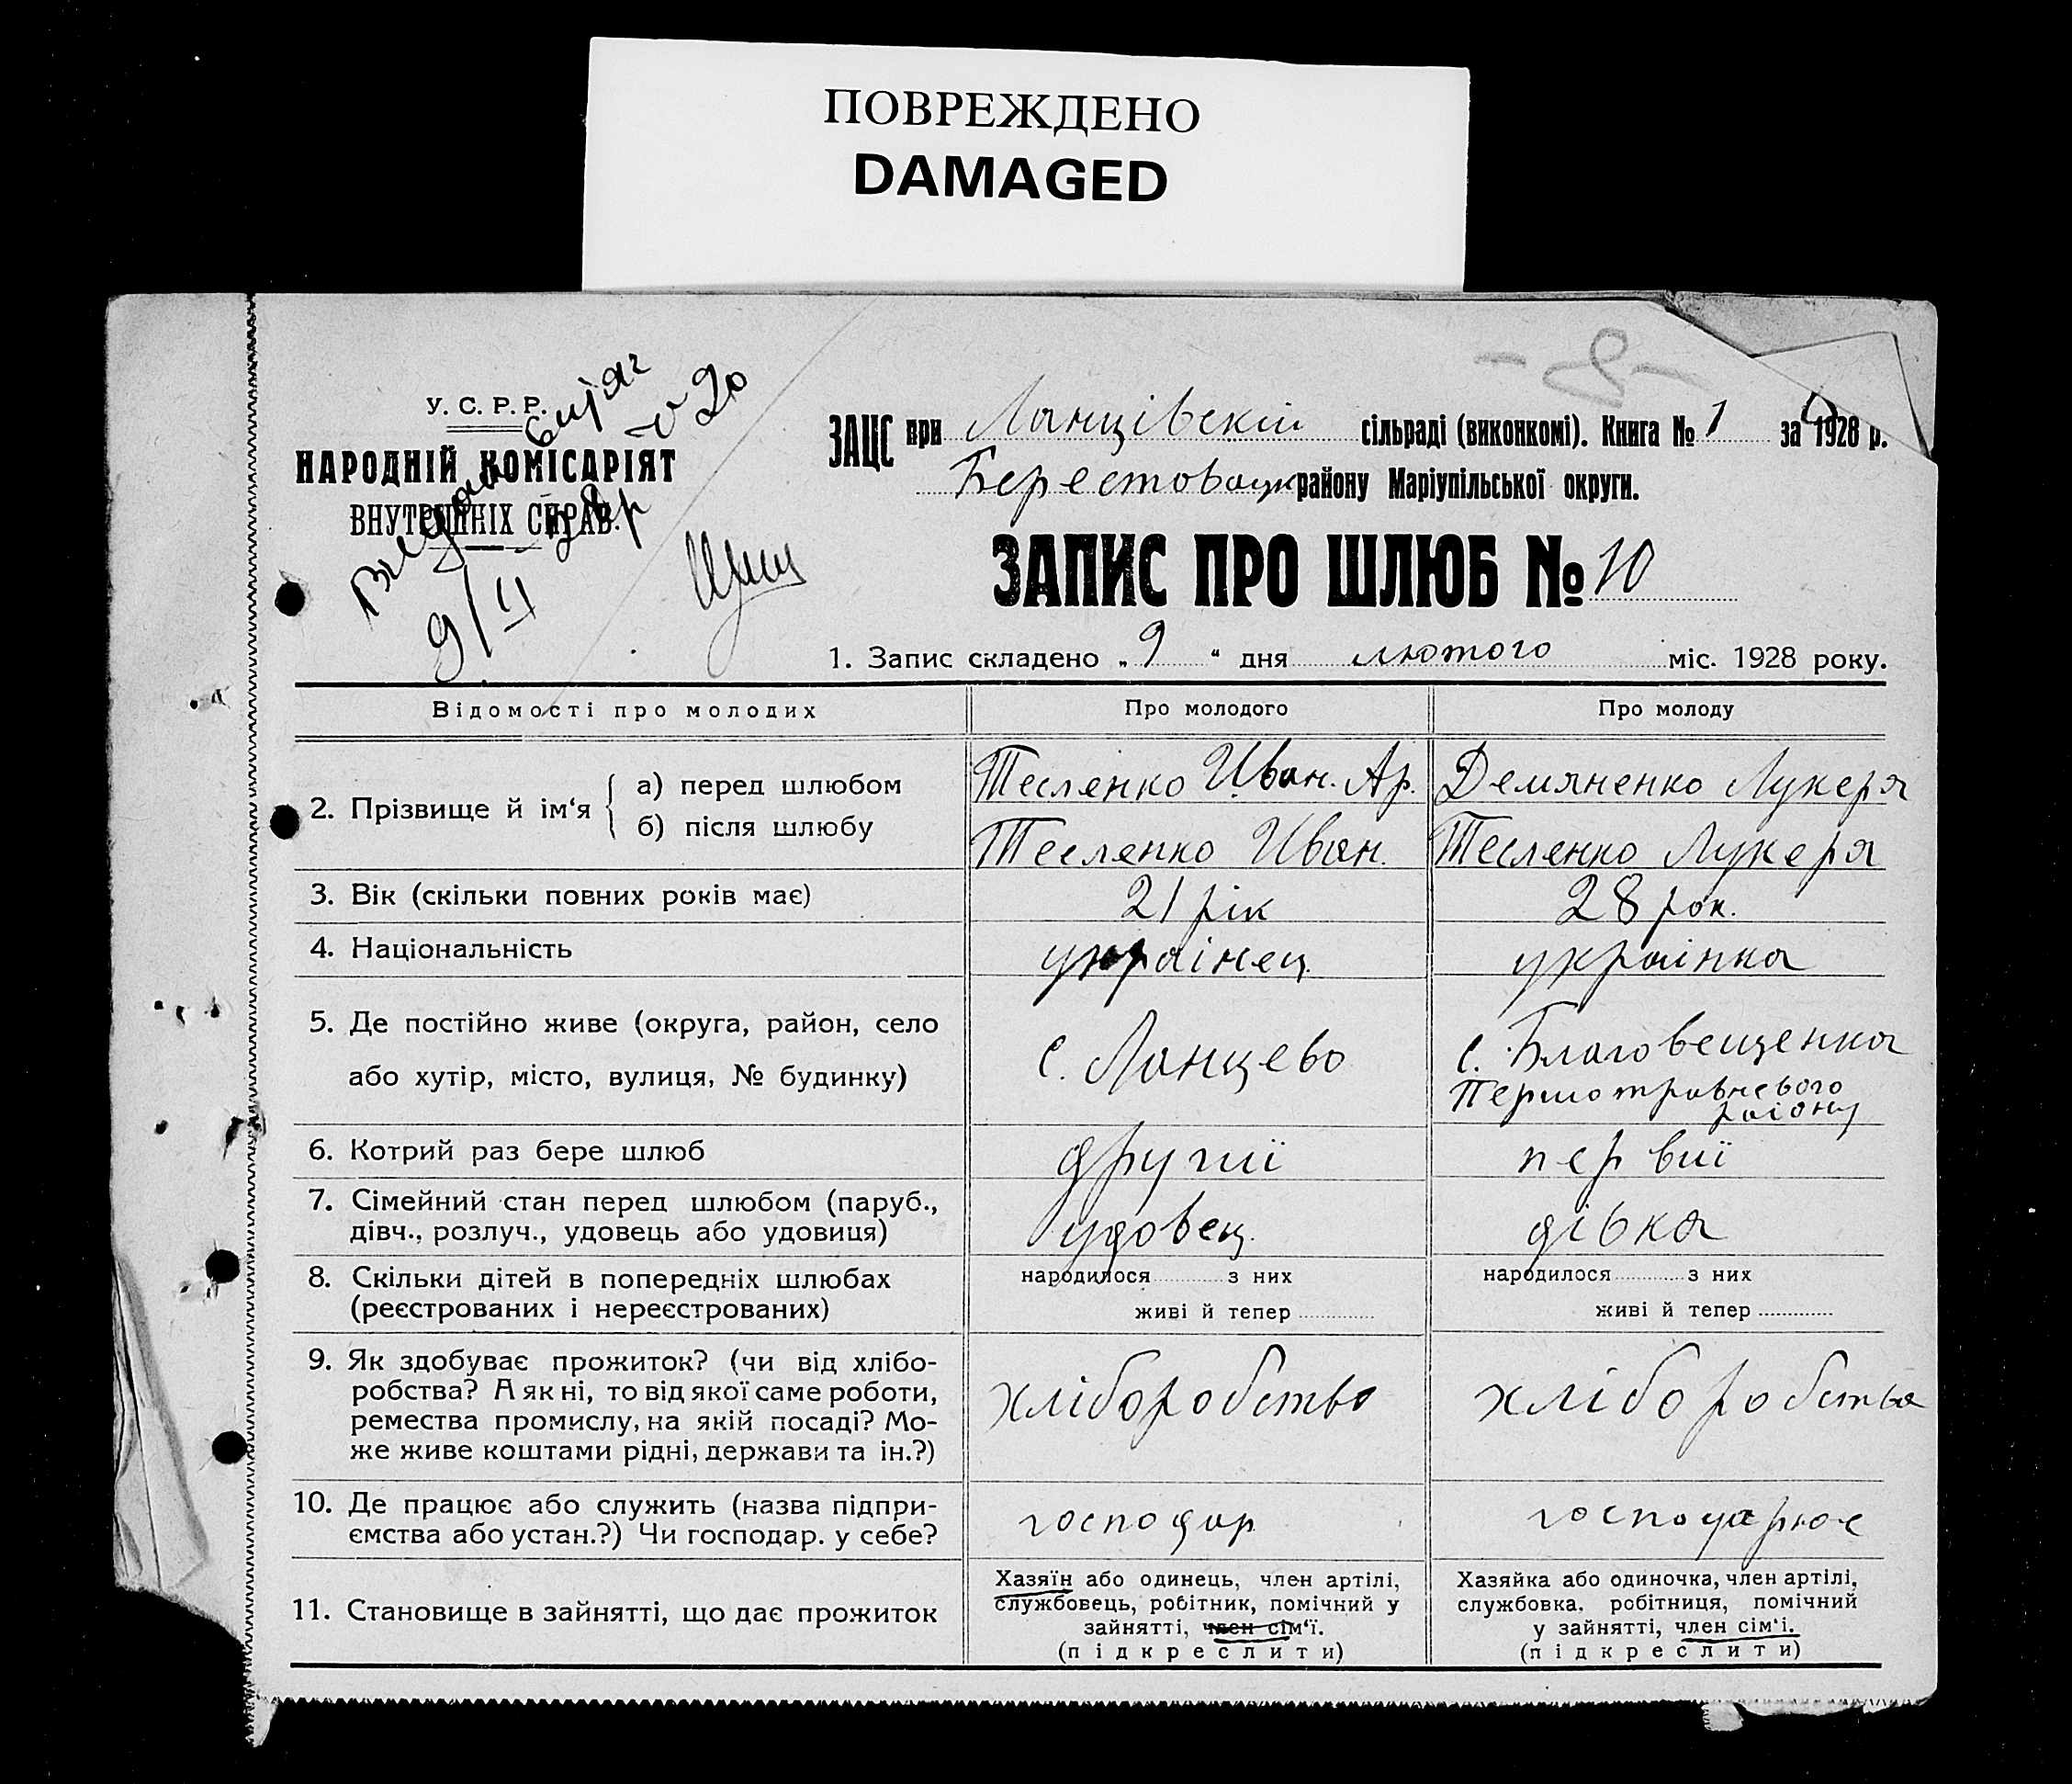 ПОВРЕЖДЕНО
DAMAGED
У. С. Р. Р.
НАРОДНІЙ КОМІСАРІЯТ
ВНУТРІШНІХ СПРАВ.
витяг
№ 20
9/II 28 р
ЗАЦС при Ланцівскій сільраді (виконкомі). Книга № 1 за 1928 р.
Берестовецк району Маріупільської округи.
ЗАПИС ПРО ШЛЮБ № 10
1. Запис складено „ 9 “ дня лютого міс. 1928 року.
Відомості про молодих Про молодого Про молоду
2. Прізвище й ім‘я { а) перед шлюбом Тесленко Иван. Ар. Демяненко Лукеря
б) після шлюбу Тесленко Иван. Тесленко Лукеря
3. Вік (скільки повних років має) 21 рік 28 рок.
4. Національність украінец українка
5. Де постійно живе (округа, район, село або хутір, місто, вулиця, № будинку) с. Ланцево с. Благовещенка
Першотравневого
району
6. Котрий раз бере шлюб другиї первиї
7. Сімейний стан перед шлюбом (паруб.,
дівч., розлуч., удовець або удовиця) удовец. дівка
8. Скільки дітей в попередніх шлюбах народилося з них народилося з них
(реєстрованих і нереєстрованих) живі й тепер живі й тепер
9. Як здобуває прожиток? (чи від хлібо-
робства? А як ні, то від якої саме роботи, хліборобство хліборобства
ремества промислу, на якій посаді? Мо-
же живе коштами рідні, держави та ін.?)
10. Де працює або служить (назва підпри- господар господарює
ємства або устан.?) Чи господар. у себе?
11. Становище в зайнятті, що дає прожиток
Хазяїн або одинець, член артілі,
службовець, робітник, помічний у
зайнятті, член сім‘ї.
(підкреслити)
Хазяйка або одиночка, член артілі,
службовка. робітниця, помічний
у зайнятті, член сім‘і.
(підкреслити)